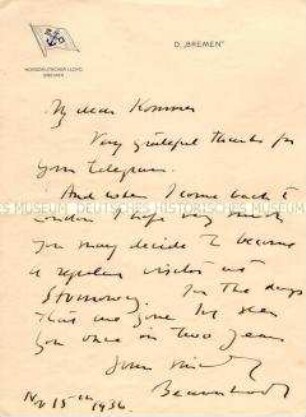 D. „BREMEN"
NORDDEUTSCHER LLOYD
BREMEN
My dear Kommer
Very grateful thanks for
your telegram.
And when I come back to
London I hope very much
you may decide to become
a regular visitor at
Stornoway. In the days
that are gone I've seen
you once in two years
Yours sincerely
Beaverbrook
Nov 15th 1936
MUSEUM DEUTSCHES HISTORISCHES MUSEUM